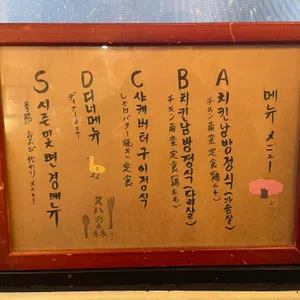 메뉴 メニュー
A 치킨남방정식 (가슴살)
チキン南蛮定食 (鶏ムネ)
B 치킨남방정식 (다리살)
チキン南蛮定食 (鶏もも)
C 샤케버터구이정식
しゃけバター焼き定食
D 디너메뉴
ディナーメニュー
S 시즌 및 변경메뉴
季節 および 代わりメニュー
スハの森!